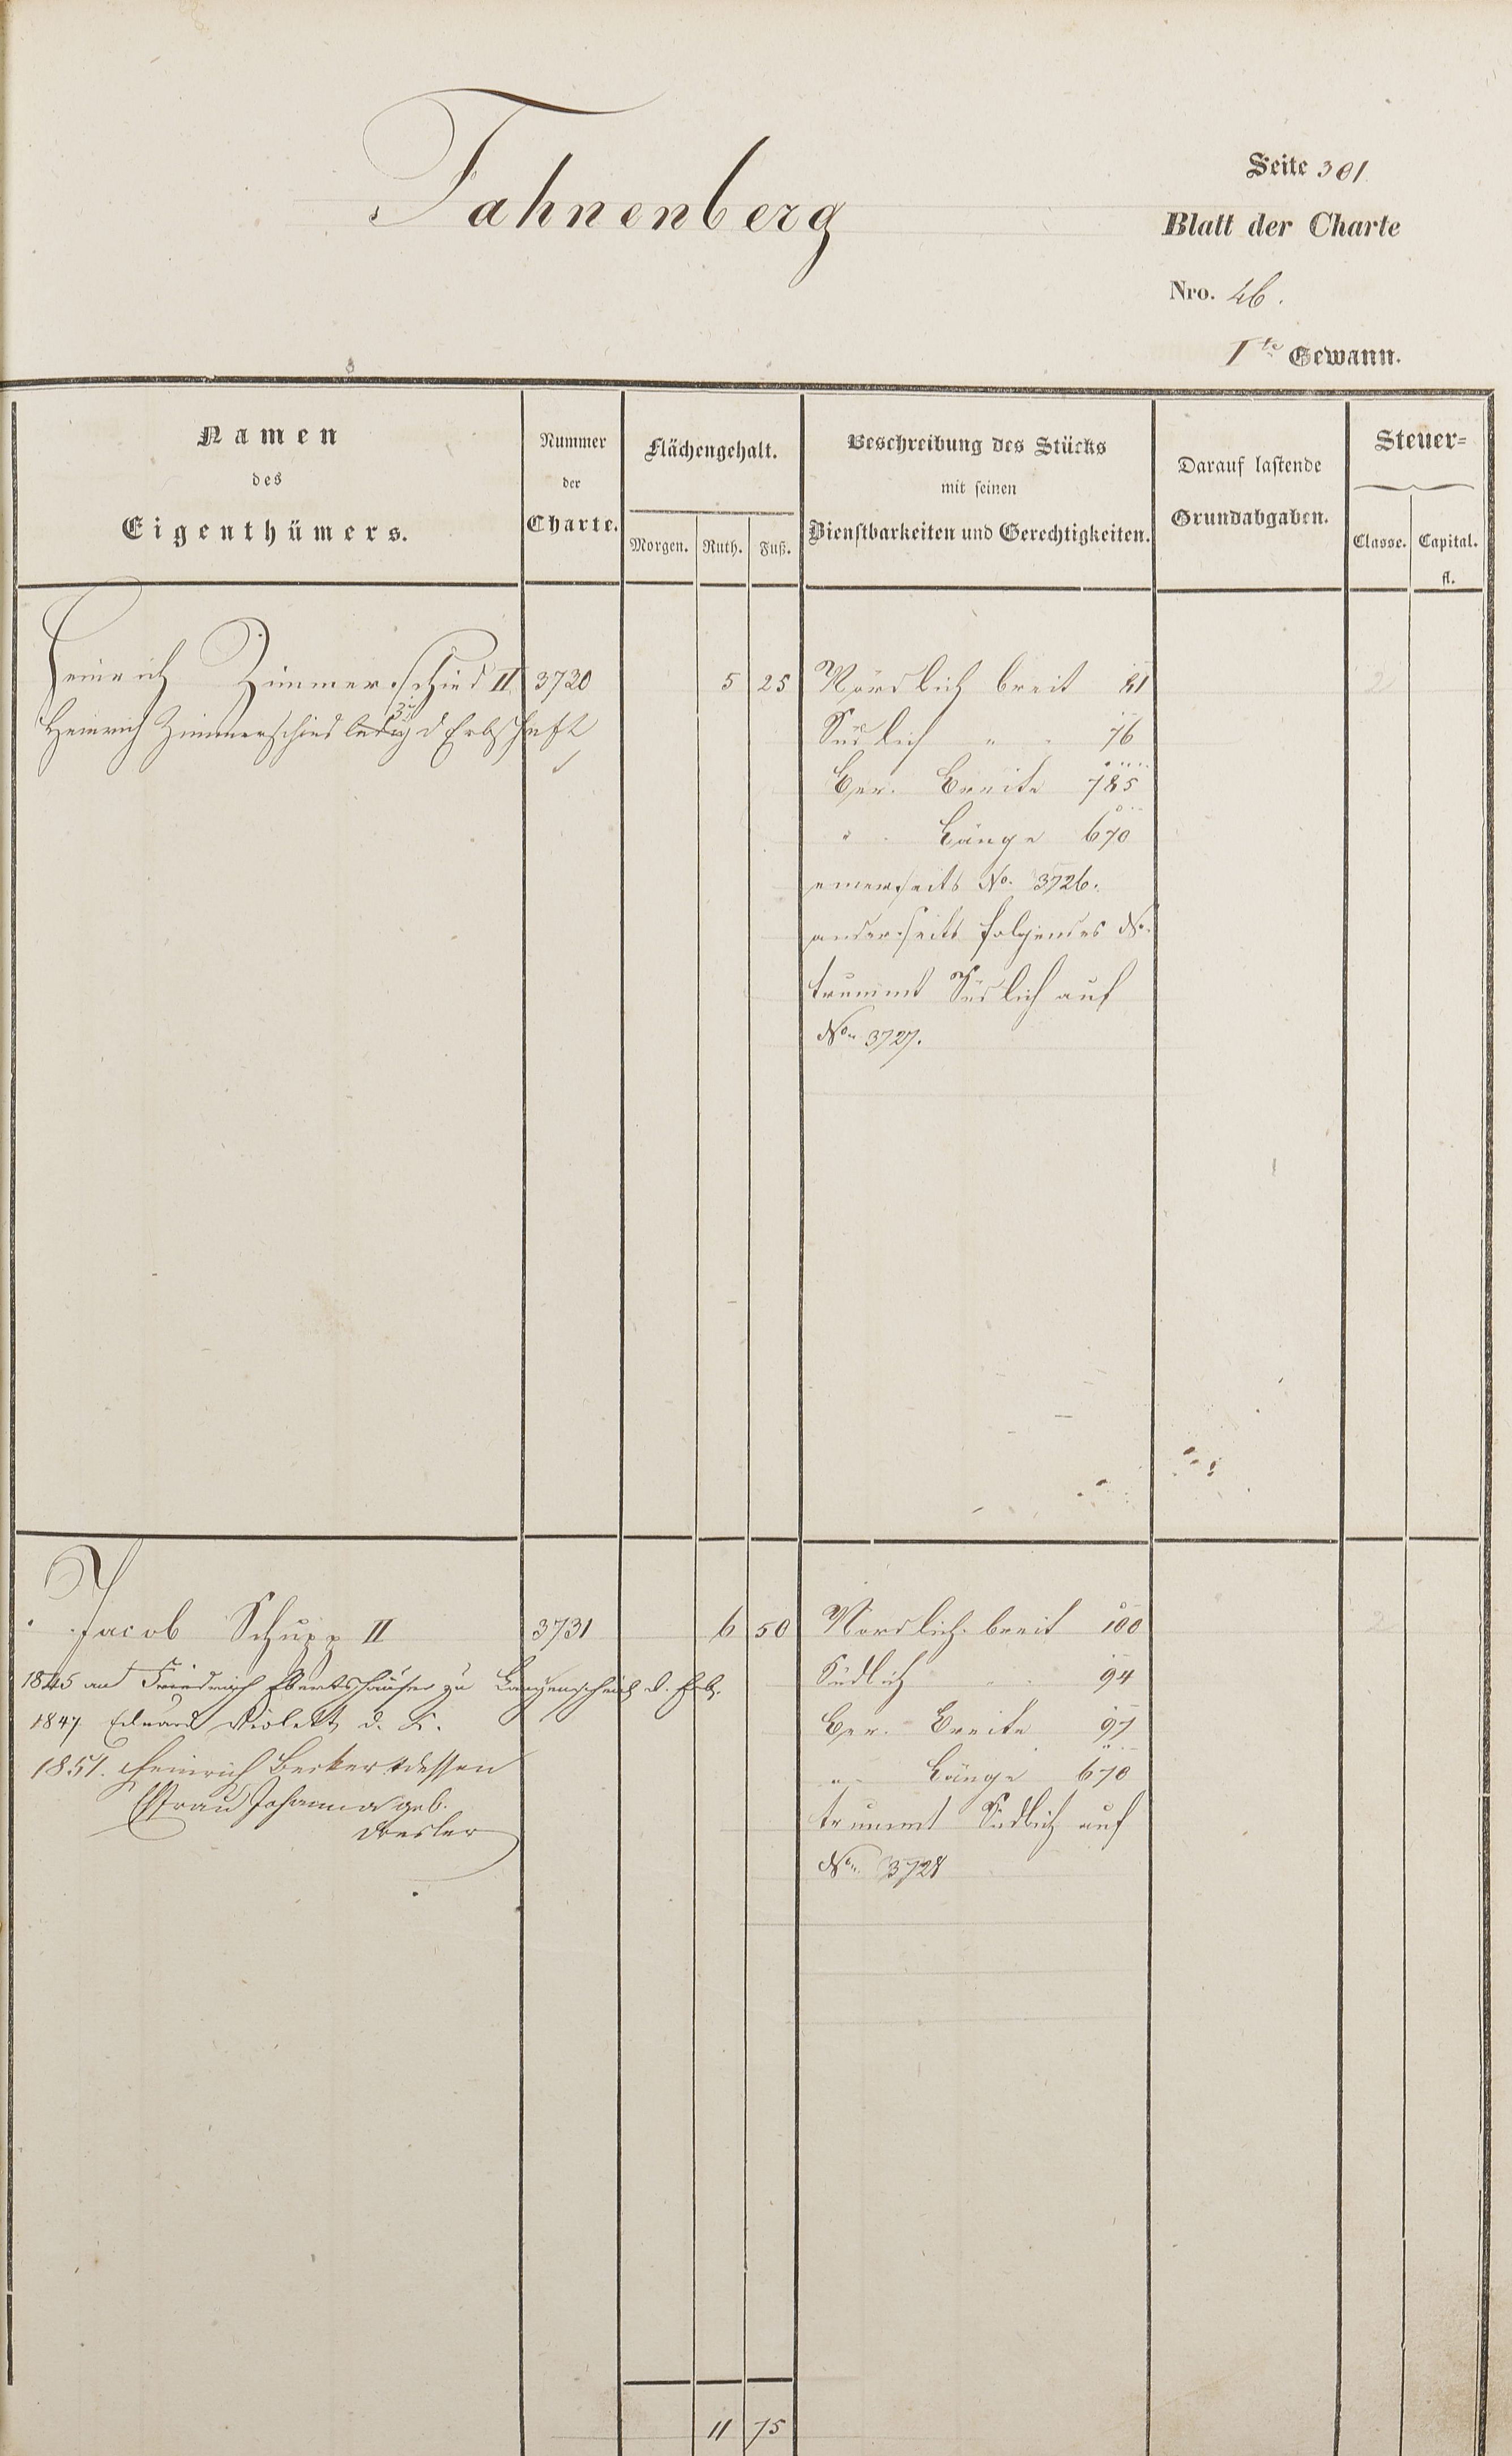 Fahnenberg
Seite 301
Blatt der Charte
Nro. 46.
1te Gewann.
Namen
des
Eigenthümers.
Nummer
der
Charte.
Flächengehalt.
Morgen. Ruth. Fuß.
Beschreibung des Stücks
mit seinen
Dienstbarkeiten und Gerechtigkeiten.
Darauf lastende
Grundabgaben.
Steuer-
Classe. Capital.
fl.
Heinrich Zimmerschied II 3730 5 25 Nördlich breit 81 2
Heinrich Zimmerschied ledig d Erbschaft
Südlich " - 76
Ger. Breite 785
" - Länge 670
einerseits No. 3726.
anderseits folgendes No.
trummt Südlich auf
No. 3727.
Jacob Schupp II 3731 6 50 Nördlich breit 100 2
1845 an Friedrich Ebertshäuser zu Langenscheid d. Erb.
Südlich 94
1847 Eduard d. K.
Ger. Breite 97
1851. Heinrich Becker & dessen
" Länge 670
Frau Johanna geb.
trummt Südlich auf
No. 3728
11 75